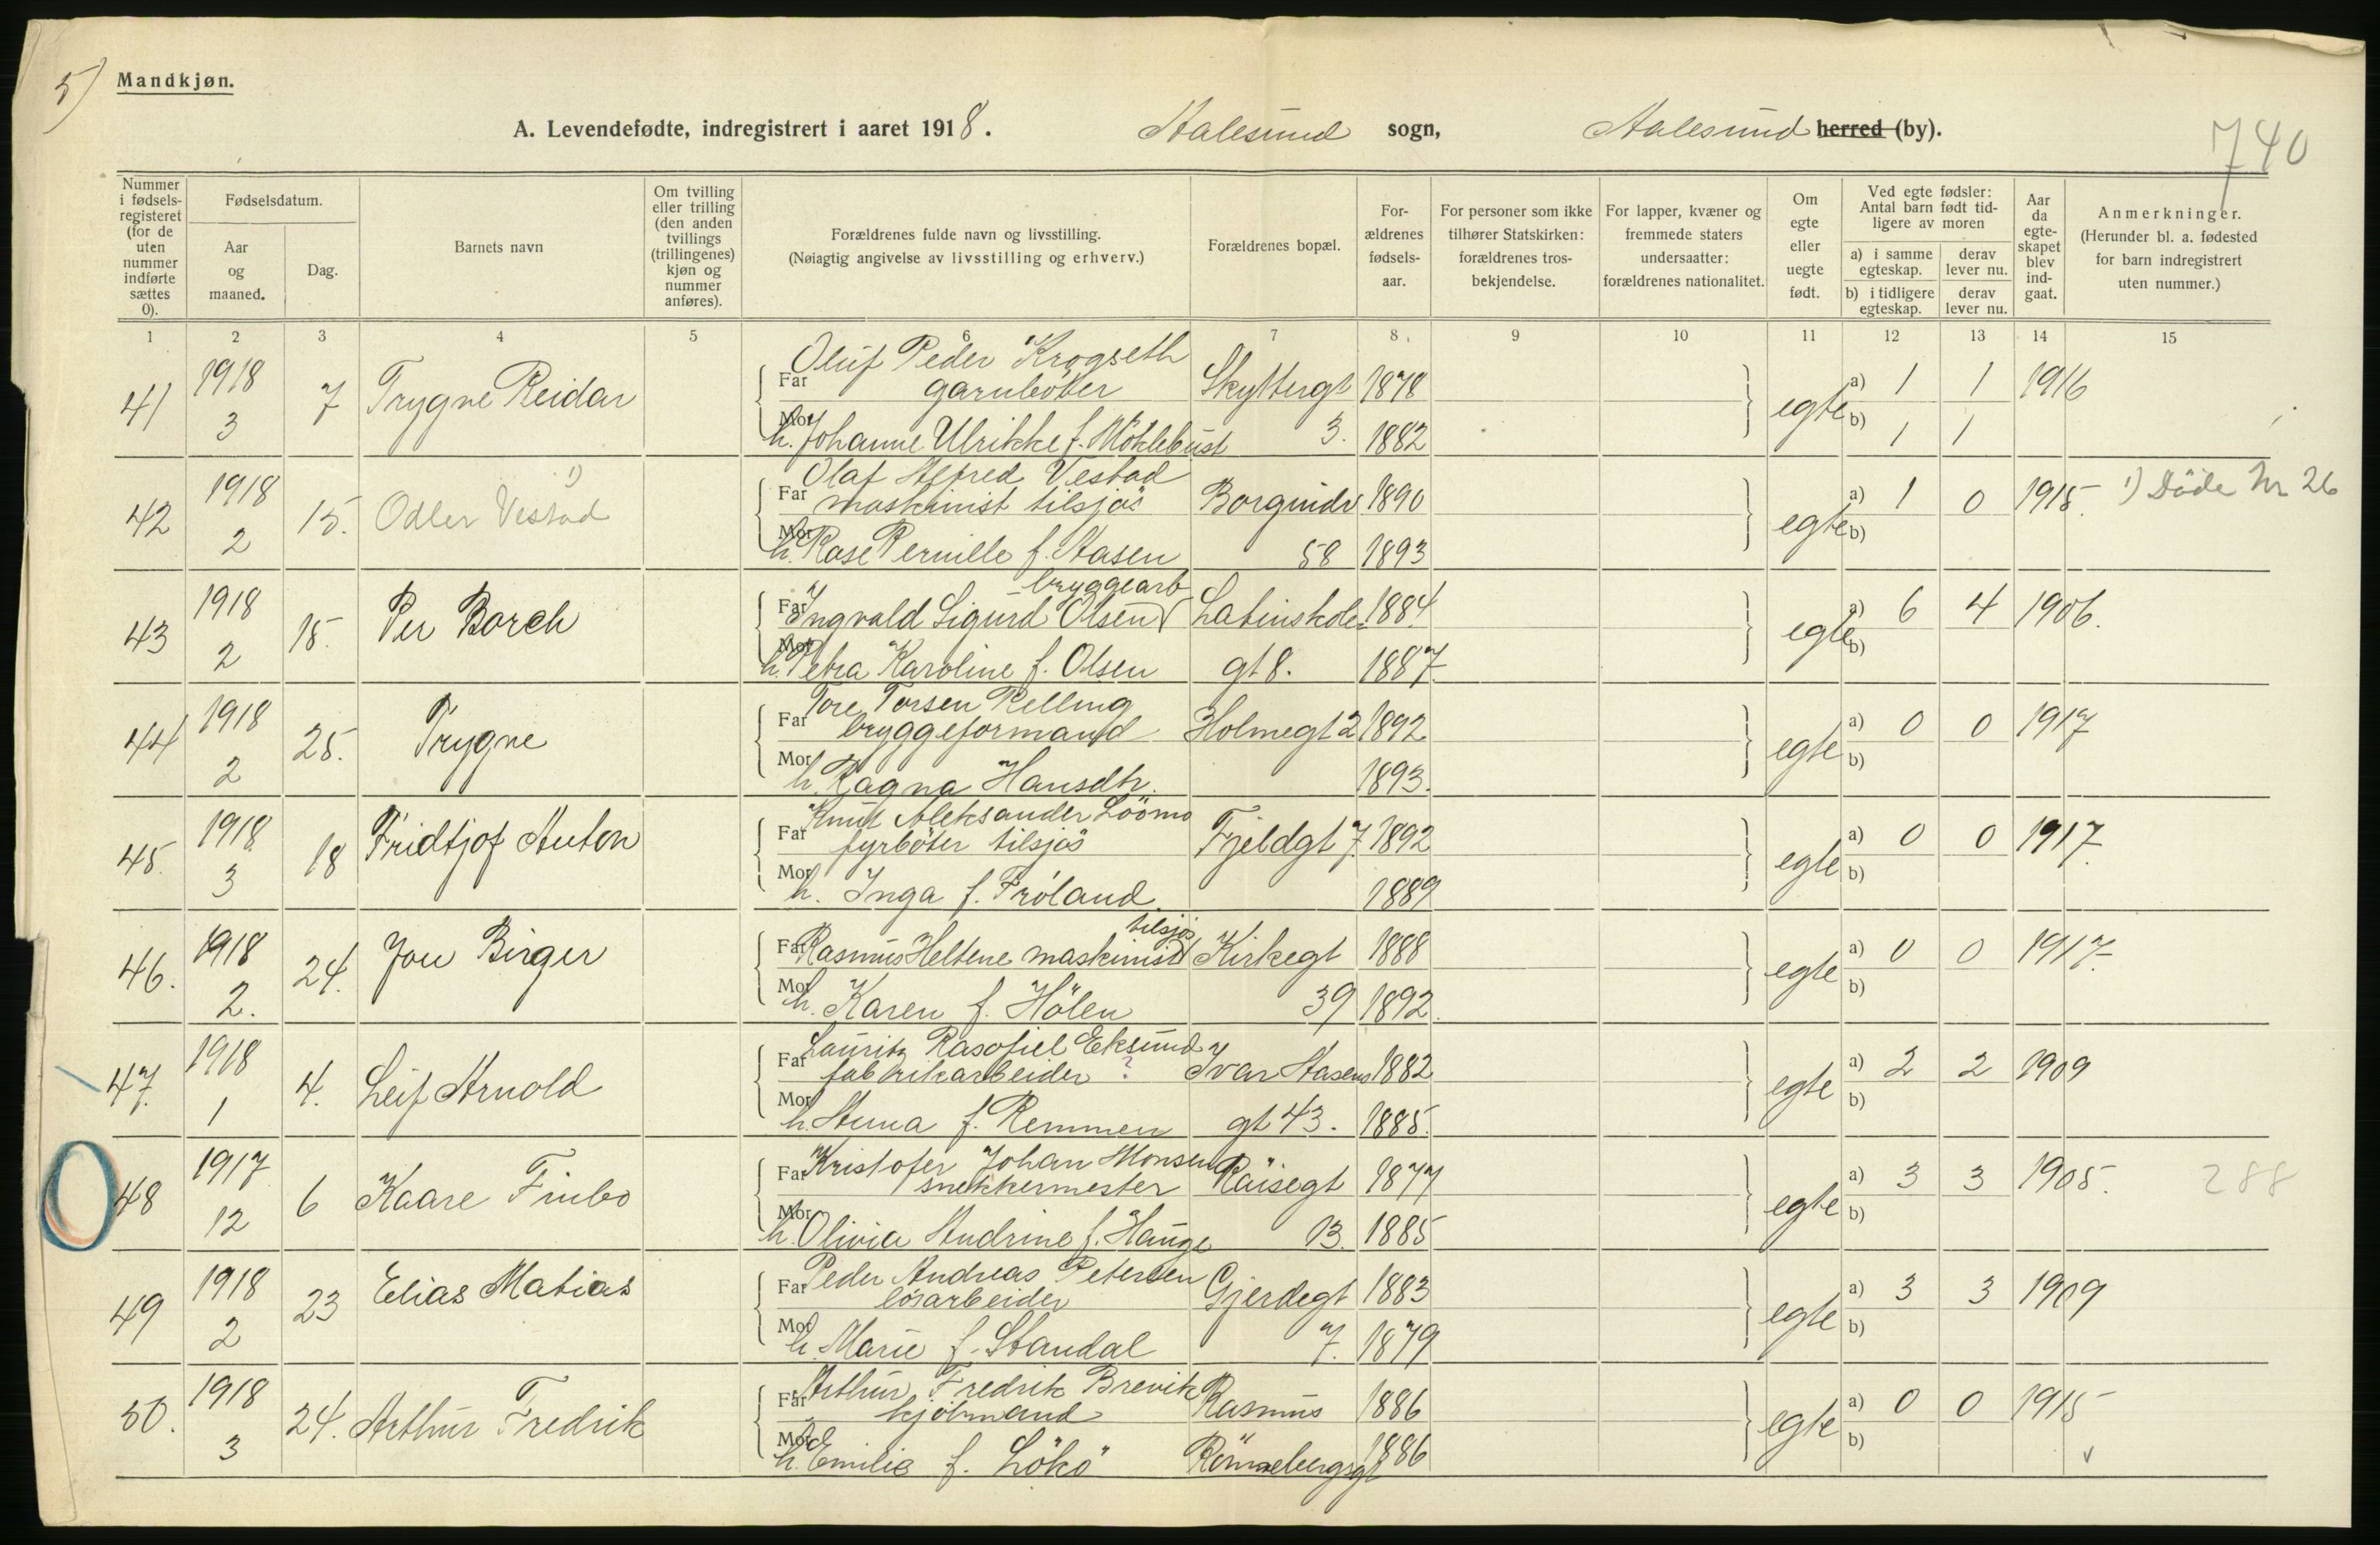 5)
Mandkjøn.
A. Levendefødte, indregistrert i aaret 1918. Aalesund sogn, Aalesund herred (by).
740
Nummer i fødselsregisteret (for de uten nummer indførte sættes 0).
Fødselsdatum.
Aar og maaned.
Dag.
Barnets navn
Om tvilling eller trilling (den anden tvillings (trillingenes) kjøn og nummer anføres).
Forældrenes fulde navn og livsstilling.
(Nøiagtig angivelse av livsstilling og erhverv.)
Forældrenes bopæl.
Forældrenes fødselsaar.
For personer som ikke tilhører Statskirken: forældrenes trosbekjendelse.
For lapper, kvæner og fremmede staters undersaatter: forældrenes nationalitet.
Om egte eller uegte født.
Ved egte fødsler: Antal barn født tidligere av moren
a) i samme egteskap.
derav lever nu.
b) i tidligere egteskap.
derav lever nu.
Aar da egteskapet blev indgaat.
Anmerkninger.
(Herunder bl. a. fødested for barn indregistrert uten nummer.)
1 2 3 4 5 6 7 8 9 10 11 12 13 14 15
Oluf Peder Krogseth
41 1918 7 Trygve Reidar Far garnbøter Skyttergt 1878 egte a) 1 1 1916
3 Mor h. Johanne Ulrikke f. Möklebust 3. 1882 b) 1 1
Olaf Alfred Vestad
42 1918 15. Odler Vestad 1) Far maskinist tilsjös Borgundv 1890 egte a) 1 0 1915. 1) Döde Nr 26
2 Mor h. Rase Pernille f. Aasen 58 1893 b)
bryggearb
43 1918 15. Per Borch Far Ingvald Sigurd Olsen Latinskole 1884 egte a) 6 4 1906.
2 Mor h. Petra Karoline f. Olsen gt 8. 1887 b)
Tore Torsen Relling
44 1918 25. Trygve Far bryggeformand Holmegt 2 1892 egte a) 0 0 1917
2 Mor h. Ragna Hansdtr. 1893. b)
Knut Aleksander Löömo
45. 1918 18 Fridtjof Anton Far fyrböter tilsjös Fjeldgt 7. 1892 egte a) 0 0 1917.
3 Mor h. Inga f. Fröland 1889 b)
tilsjös
46. 1918 24. Jon Birger Far Rasmus Heltene maskinist Kirkegt 1888 egte a) 0 0 1917.
2. Mor h. Karen f. Hölen 39 1892. b)
Lauritz Rasofiel Eksund
47. 1918 4. Leif Arnold Far fabrikarbeider ? Ivar Aasens 1882 egte a) 2 2 1909
1 Mor h. Anna f. Remmen gt 43. 1885. b)
Kristofer Johan Monsen
48 1917 6 Kaare Finbo Far snekkermester Räisegt 1877 egte a) 3 3 1905. 288
12 Mor h. Olivia Andrine f. Hauge 13. 1885 b)
Peder Andreas Petersen
49 1918 23 Elias Matias Far lösarbeider Gjerdegt 1883 egte a) 3 3 1909
2 Mor h. Marie f. Standal 7. 1879 b)
Arthur Fredrik Brevik
50. 1918 24. Arthur Fredrik Far kjöbmand Rasmus 1886 egte a) 0 0 1915
3 Mor h. Emilie f. Lökö Rönnebergsgt 1886 b)